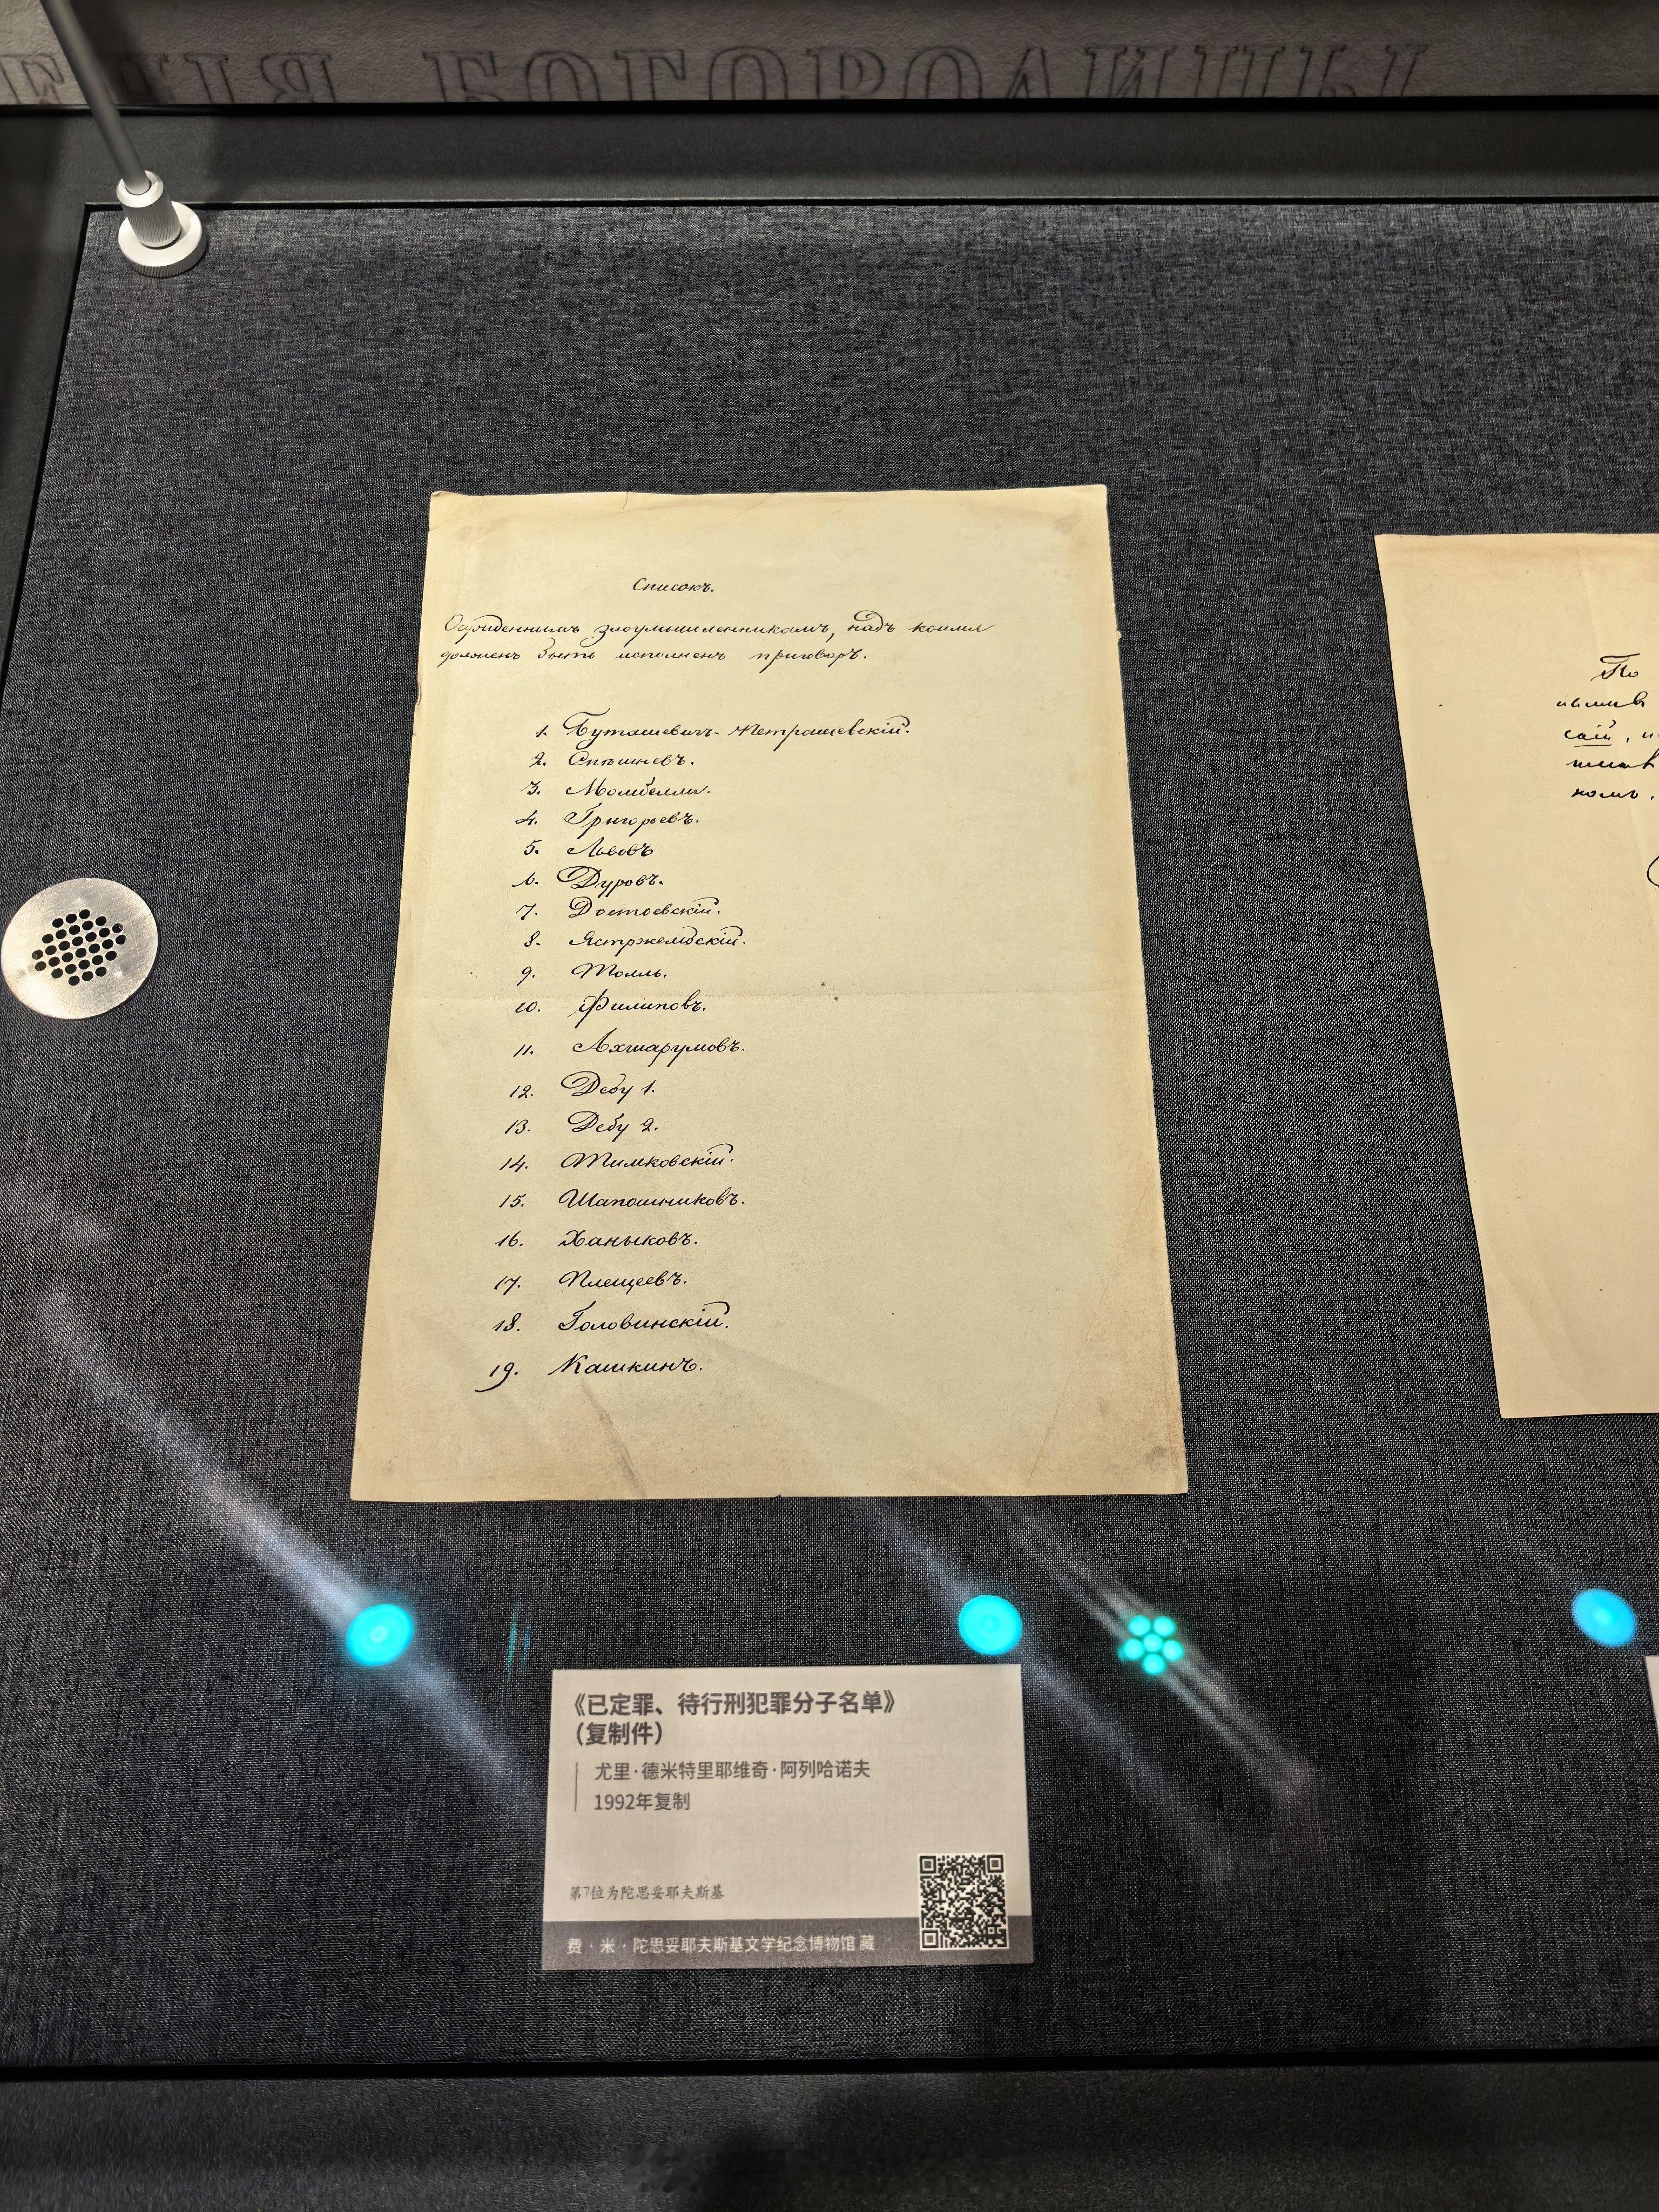 БОГОРОДИЦЫ
Списокъ.
Осужденнымъ злоумышленникамъ, надъ коими
долженъ быть исполненъ приговоръ.
1. Буташевичъ-Петрашевскій.
2. Спѣшневъ.
3. Момбелли.
4. Григорьевъ.
5. Львовъ
6. Дуровъ.
7. Достоевскій.
8. Ястржембскій.
9. Толль.
10. Филиповъ.
11. Ахшарумовъ.
12. Дебу 1.
13. Дебу 2.
14. Тимковскій.
15. Шапошниковъ.
16. Ханыковъ.
17. Плещеевъ.
18. Головинскій.
19. Кашкинъ.
По
《已定罪、待行刑犯罪分子名单》
（复制件）
尤里·德米特里耶维奇·阿列哈诺夫
1992年复制
第7位为陀思妥耶夫斯基
费·米·陀思妥耶夫斯基文学纪念博物馆 藏